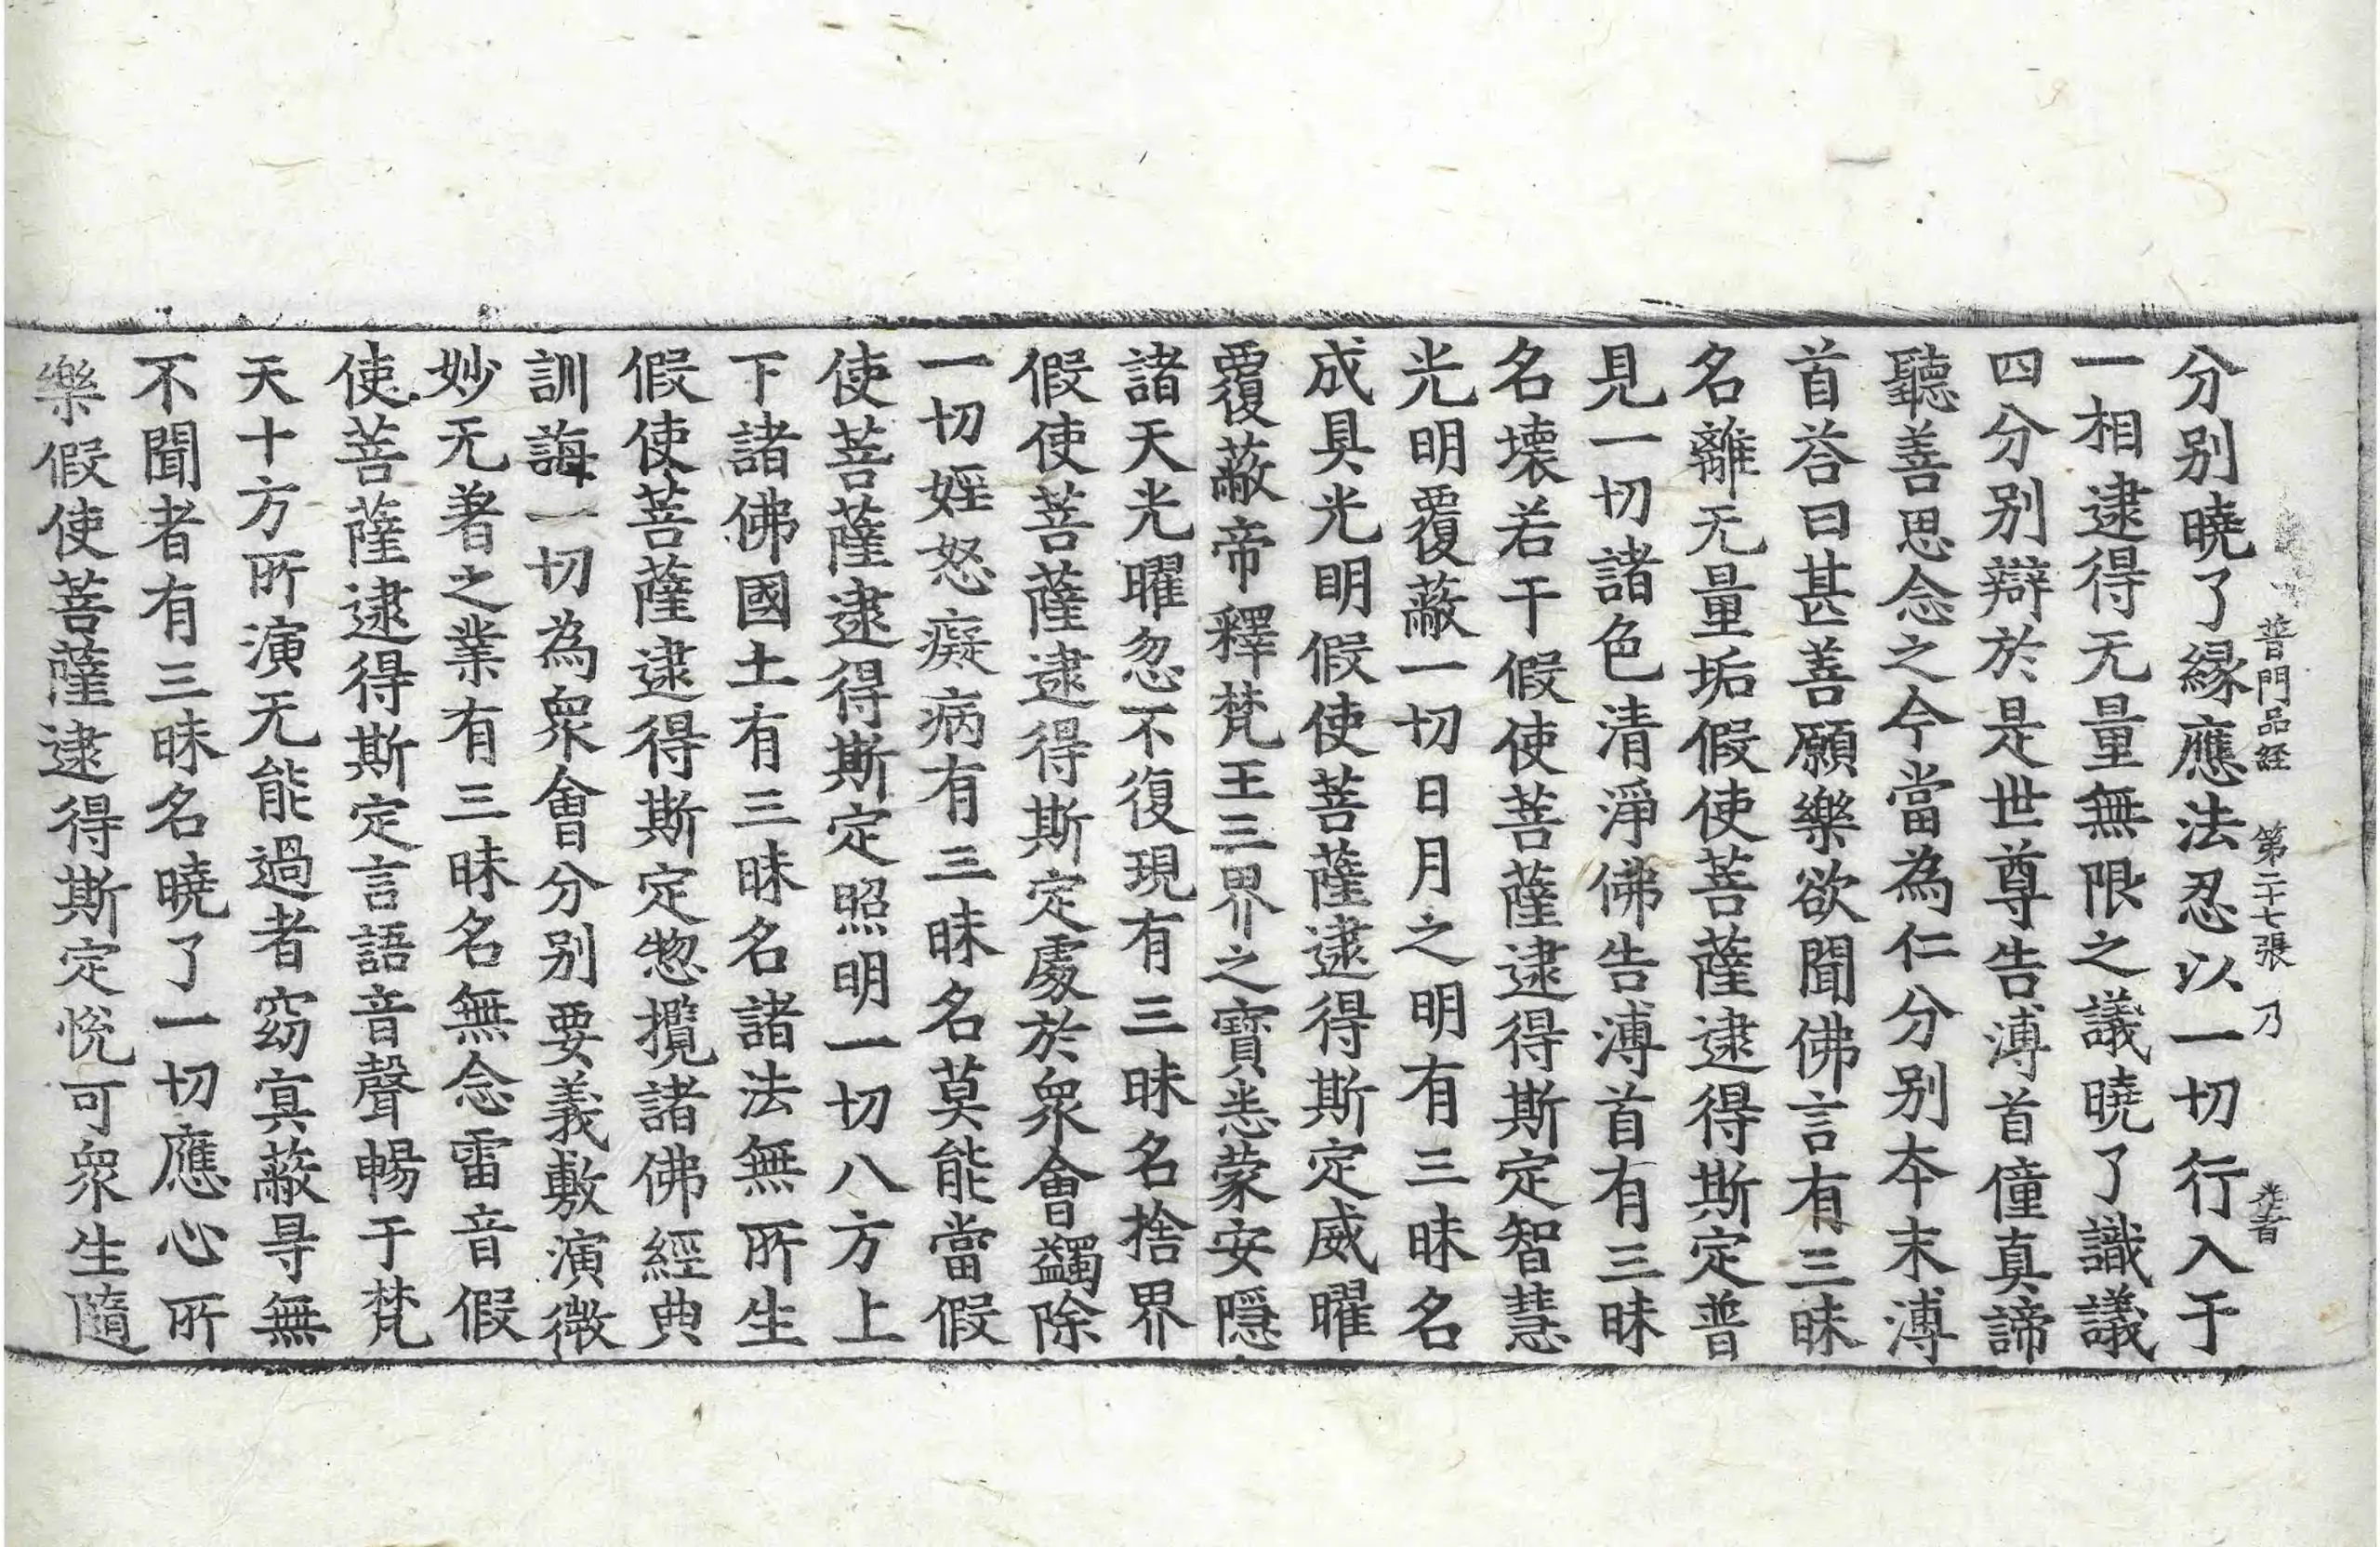 普門品経 第二十七張 乃
分别曉了縁應法忍以一切行入于
一相逮得无量無限之議曉了識議
四分别辯於是世尊告溥首僮真諦
聽善思念之今當為仁分别夲末溥
首荅曰甚善願樂欲聞佛言有三昧
名離无量垢假使菩薩逮得斯定普
見一切諸色清淨佛告溥首有三昧
名壊若干假使菩薩逮得斯定智慧
光明覆蔽一切日月之明有三昧名
成具光明假使菩薩逮得斯定威曜
覆蔽帝釋梵王三界之寶悉蒙安隱
諸天光曜忽不復現有三昧名捨界
假使菩薩逮得斯定處於衆會蠲除
一切婬怒癡病有三昧名莫能當假
使菩薩逮得斯定照明一切八方上
下諸佛國土有三昧名諸法無所生
假使菩薩逮得斯定惣攬諸佛經典
訓誨一切為衆會分别要義敷演微
妙无著之業有三昧名無念雷音假
使菩薩逮得斯定言語音聲暢于梵
天十方所演无能過者窈㝠蔽㝵無
不聞者有三昧名曉了一切應心所
樂假使菩薩逮得斯定悅可衆生隨